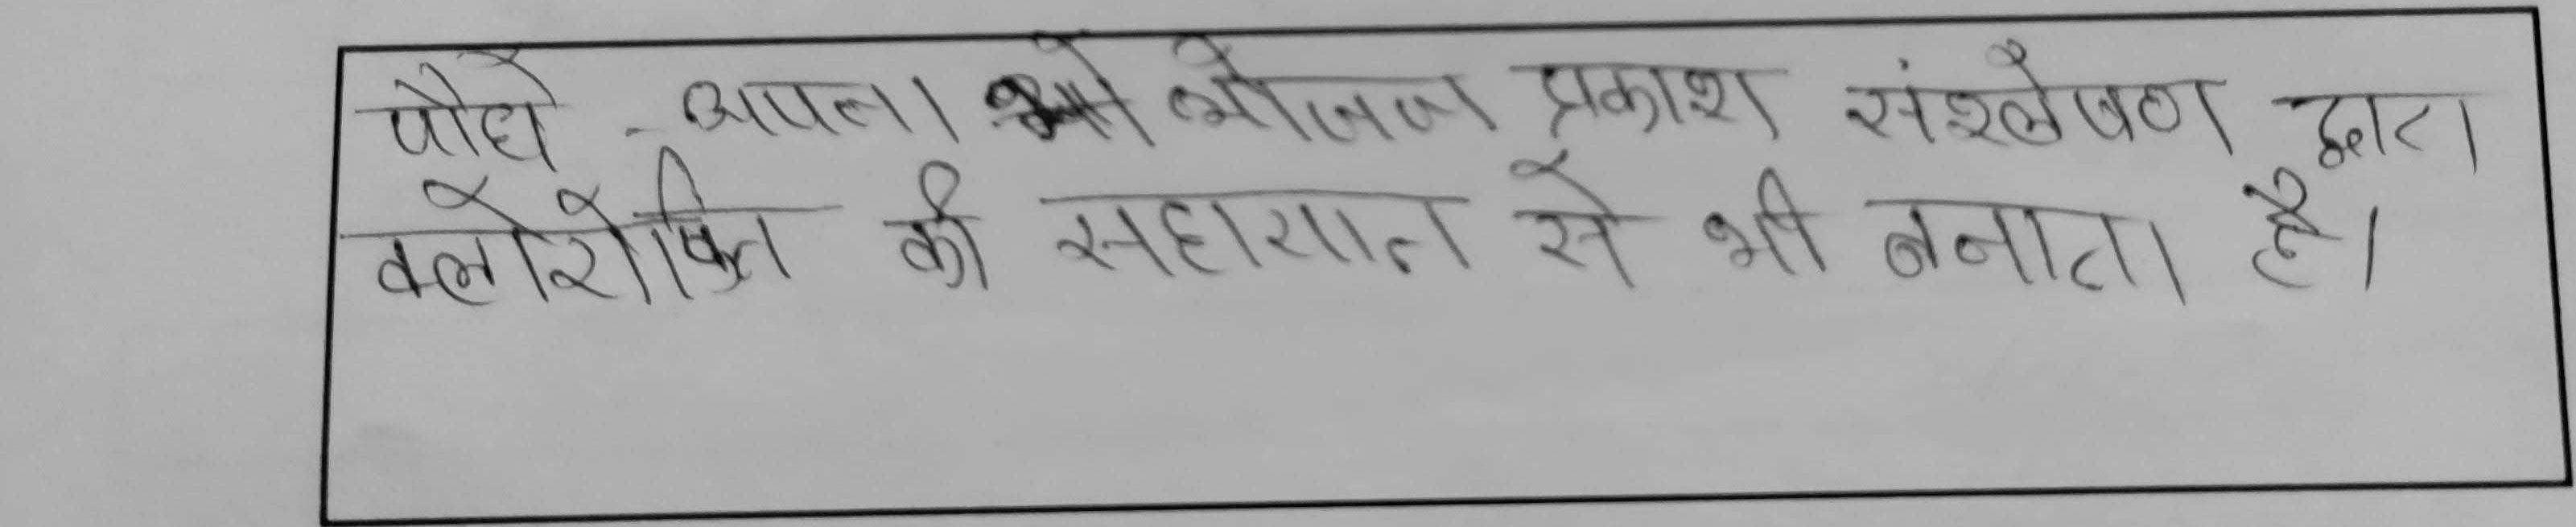 पौधे अपना भोजन प्रकाश संश्लेषण द्वारा
क्लोरोफिल की सहायान से भी बनाता है।